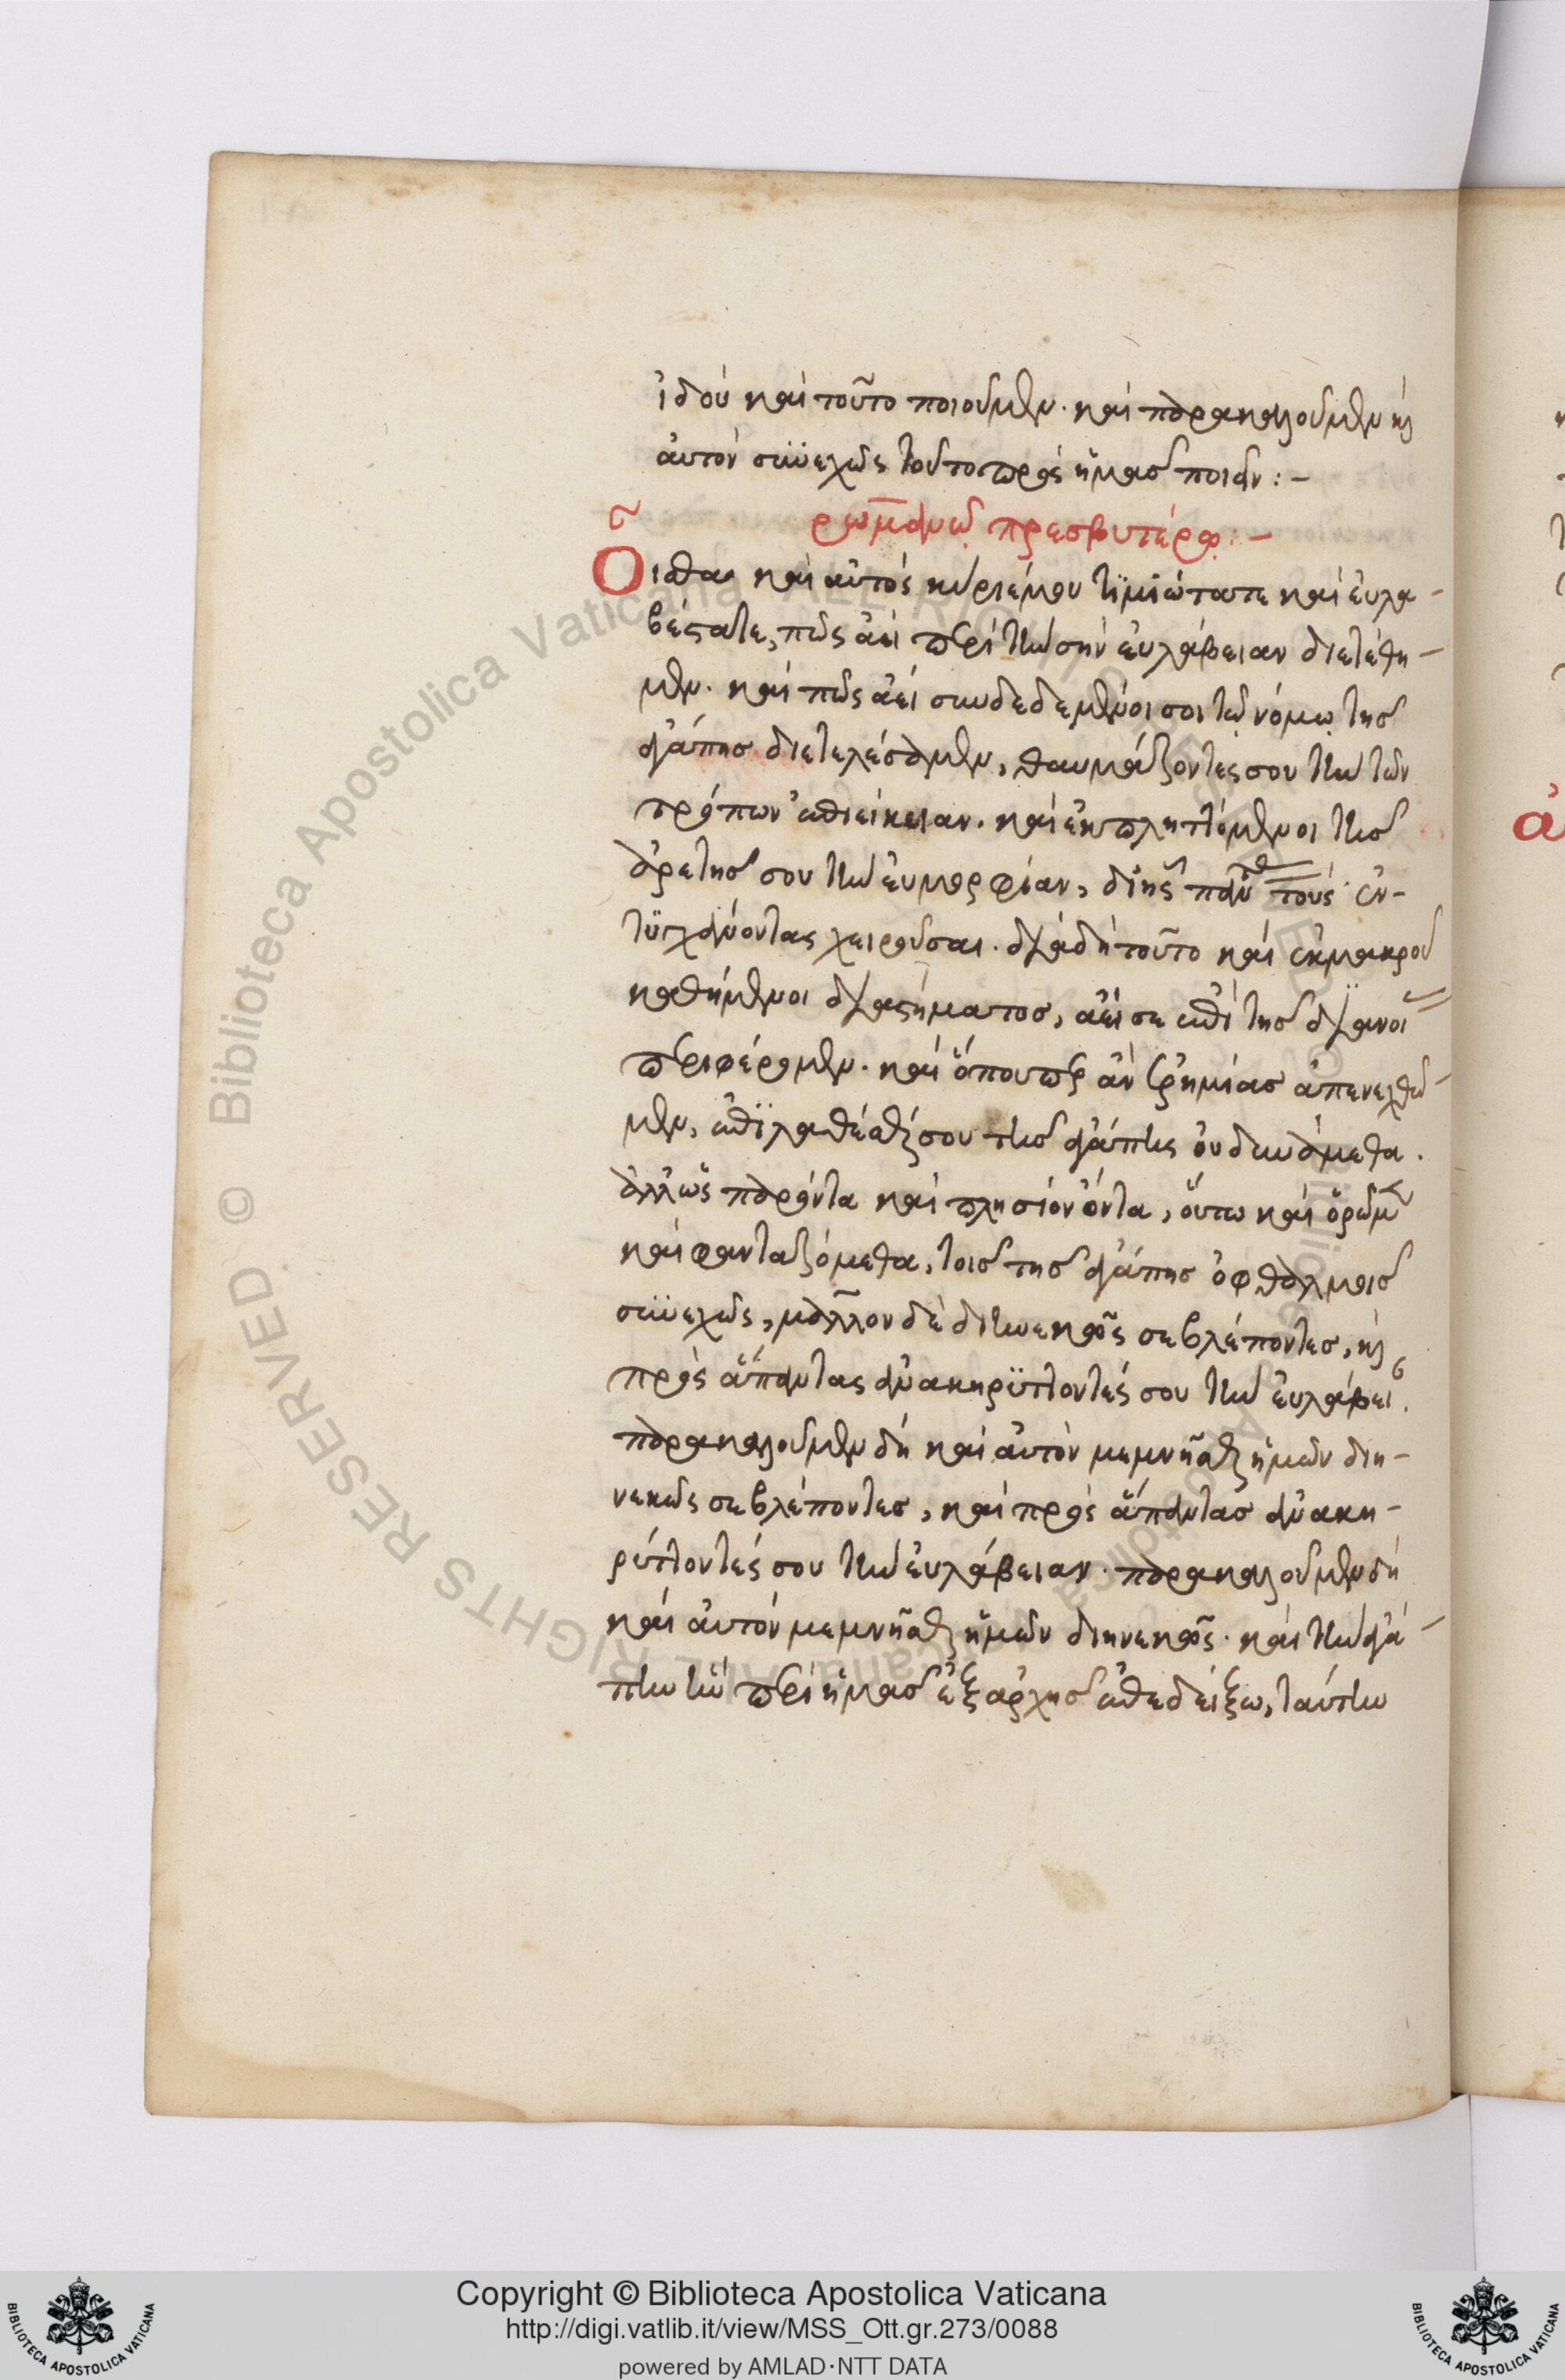 ἰδοὺ καὶ τοῦτο ποιοῦμεν· καὶ παρακαλοῦμεν καὶ
αὐτὸν συνεχῶς τοῦτο πρὸς ἡμᾶς ποιεῖν:-
ρωμανῷ πρεσβυτέρῳ:-
Οἶσθα καὶ αὐτὸς κύριέ μου τιμιώτατε καὶ εὐλα-
βέστατε, πῶς ἀεὶ περὶ τὴν σὴν εὐλάβειαν διετέθη-
μεν· καὶ πῶς ἀεὶ συνδεδεμένοι σοι τῷ νόμῳ τῆς
ἀγάπης διετελέσαμεν, θαυμάζοντές σου τὴν τῶν
τρόπων ἐπιείκειαν· καὶ ἐκπληττόμενοι τῆς
ἀρετῆς σου τὴν εὐμορφίαν, δι' ἧς πάντας τοὺς ἐν-
τυγχάνοντας χειροῦσαι· διὰ δὴ τοῦτο καὶ ἐκ μακροῦ
καθήμενοι διαστήματος, ἀεί σε ἐπὶ τῆς διανοίας
περιφέρομεν· καὶ ὅπουπερ ἂν ἐρημίας ἀπενεχθῶ-
μεν, ἐπιλαθέσθαι σου τῆς ἀγάπης οὐ δυνάμεθα.
ἀλλ' ὡς παρόντα καὶ πλησίον ὄντα, οὕτω καὶ ὁρῶμεν
καὶ φανταζόμεθα, τοῖς τῆς ἀγάπης ὀφθαλμοῖς
συνεχῶς, μᾶλλον δὲ διηνεκῶς σε βλέποντες, καὶ
πρὸς ἅπαντας ἀνακηρύττοντές σου τὴν εὐλάβειαν.
παρακαλοῦμεν δὴ καὶ αὐτὸν μεμνῆσθαι ἡμῶν διη-
νεκῶς σε βλέποντες, καὶ πρὸς ἅπαντας ἀνακη-
ρύττοντές σου τὴν εὐλάβειαν· παρακαλοῦμεν δὴ
καὶ αὐτὸν μεμνῆσθαι ἡμῶν διηνεκῶς· καὶ τὴν ἀγά-
πην ἣν περὶ ἡμᾶς ἐξ ἀρχῆς ἐπεδείξω, ταύτην
Copyright © Biblioteca Apostolica Vaticana
http://digi.vatlib.it/view/MSS_Ott.gr.273/0088
powered by AMLAD·NTT DATA